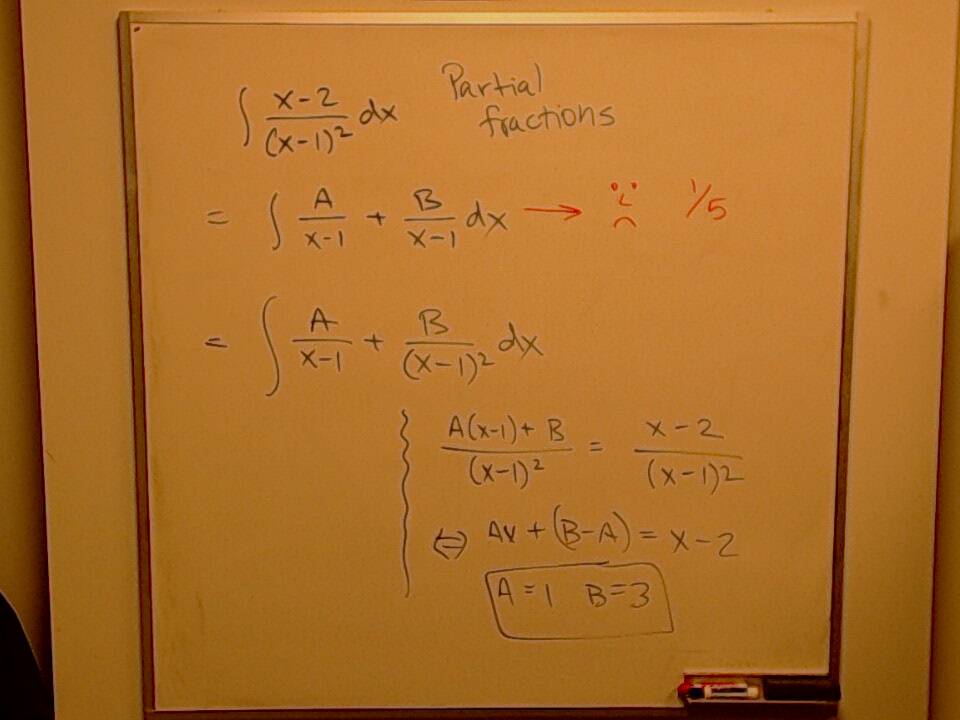 ∫ x-2/(x-1)² dx Partial fractions
= ∫ A/x-1 + B/x-1 dx → 1/5
= ∫ A/x-1 + B/(x-1)² dx
A(x-1)+B/(x-1)² = x-2/(x-1)2
⇔ Ax + (B-A) = x-2
A=1 B=3